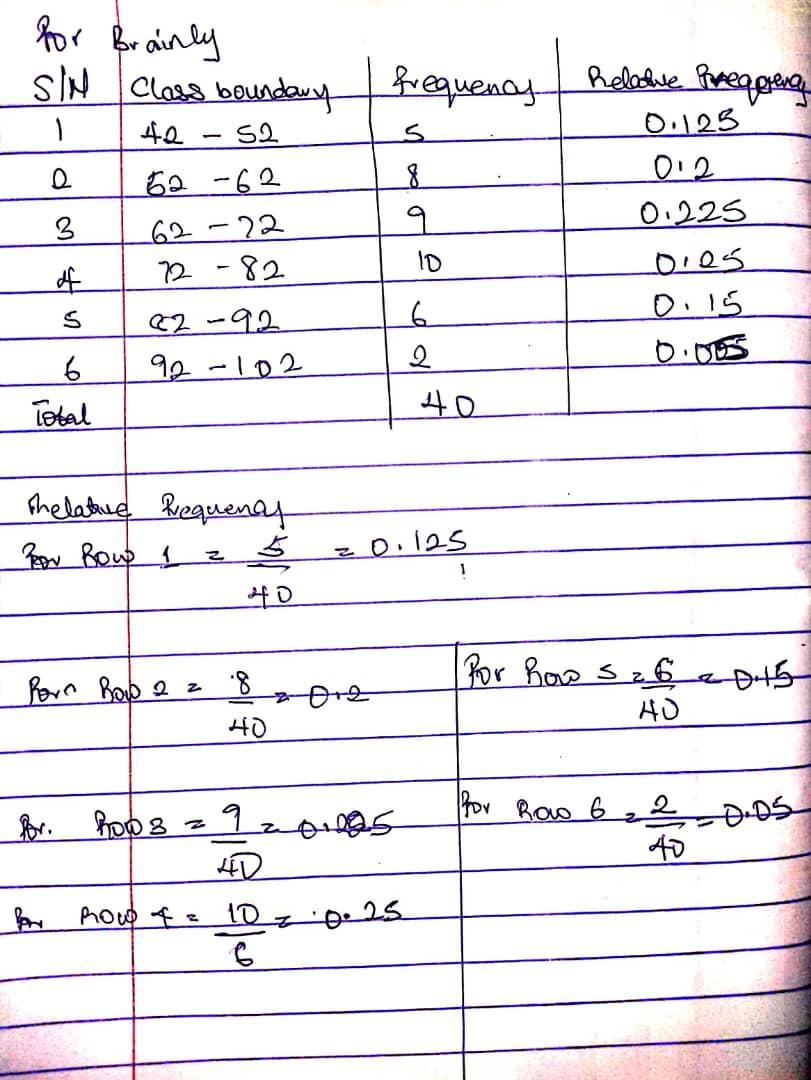 For Brainly
S/N Class boundary frequency Relative Frequency
1 42 - 52 5 0.125
2 52 - 62 8 0.2
3 62 - 72 9 0.225
4 72 - 82 10 0.25
5 82 - 92 6 0.15
6 92 - 102 2
Total 40
Relative Frequency
For Row 1 = 5/40 = 0.125
For Row 2 = 8/40 = 0.2
For Row 3 = 9/40 =
For Row 4 = 10/6 = 0.25
For Row 5 = 6/40 = 0.15
For Row 6 = 2/40 = 0.05